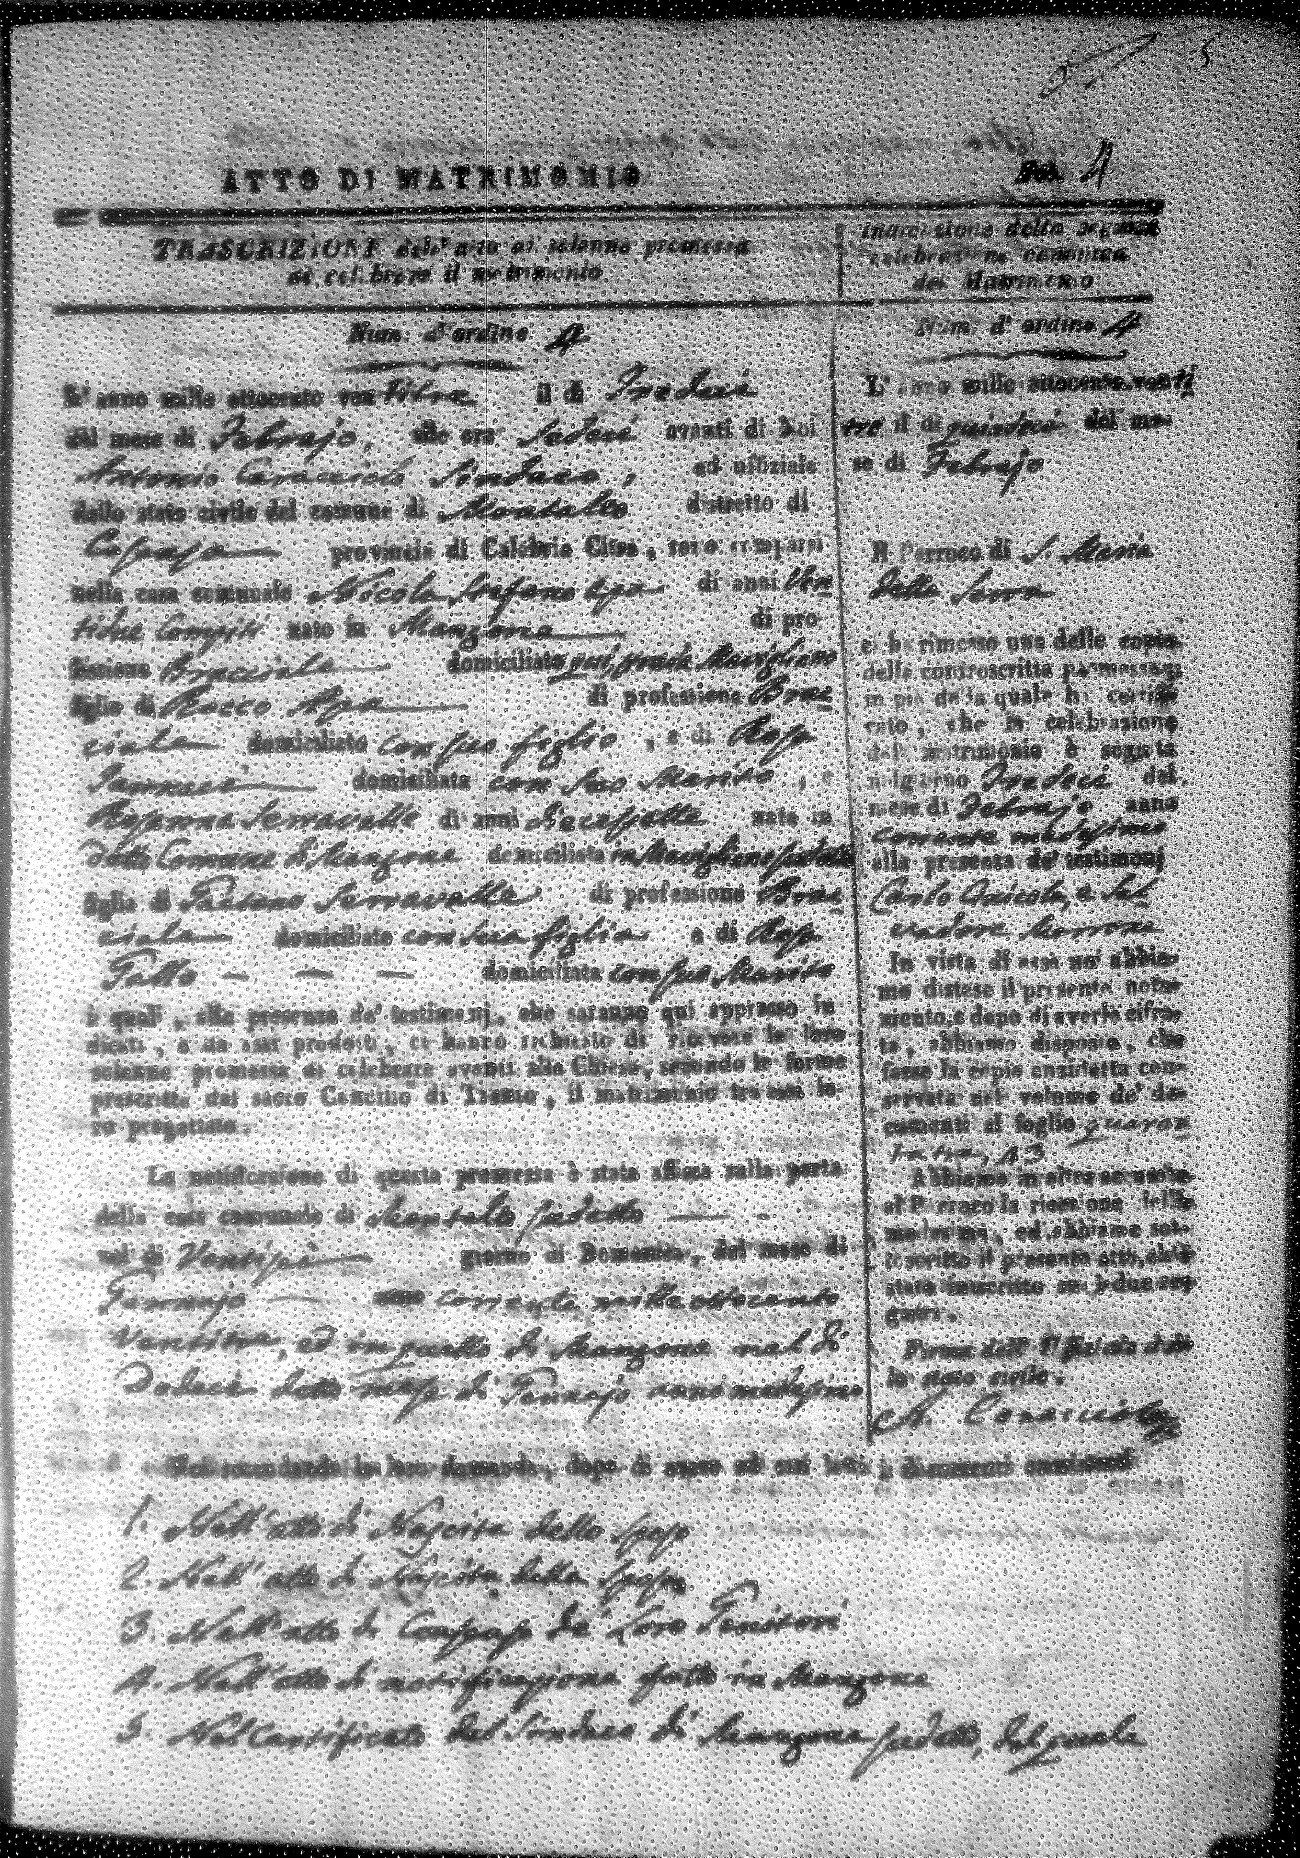 5
ATTO DI MATRIMONIO
Num. 4
TRASCRIZIONE dell' atto di solenne promessa
di celebrare il matrimonio
Num. d' ordine 4
L' anno mille ottocento ventitre il di Tredeci
del mese di Febrajo, alle ore sedeci avanti di Noi
Antonio Caracciolo Sindaco, ed uffiziale
dello stato civile del comune di Montalto distretto di
provincia di Calabria Citra, sono comparsi
nella casa comunale Nicola Stefano Apa di anni Ven
titre Compiti nato in Mangone di pro
fessione Bracciale domiciliato Marigliano
figlio di Rocco Apa di professione Brac
ciale domiciliato con suo figlio, e di Rosa
domiciliata con suo Marito, e
Rosanna Serravalle di anni Diecessette nata in
detto Comune di Mangone domiciliata in Marigliano sudetto
figlia di Gaetano Serravalle di professione Brac
ciale domiciliato con sua figlia e di Rosa
Gallo domiciliata con suo Marito
i quali, alla presenza de' testimonj, che saranno qui appresso in
dicati, e da essi prodotti, ci hanno richiesto di ricevere la loro
solenne promessa di celebrare avanti alla Chiesa, secondo le forme
prescritte dal sacro Concilio di Trento, il matrimonio tra essi lo-
ro progettato.
La notificazione di questa promessa è stata affissa sulla porta
della casa comunale di Montalto sudetto
nel di Ventisei giorno di Domenica, del mese di
Gennajo corrente mille ottocento
ventitre, ed in quello di Mangone nel di
Dodeci detto mese di Gennajo anno medesimo
Noi secondando la loro domanda, dopo di aver ad essi letti i documenti consistenti
1. Nell' atto di Nascita dello Sposo
2. Nell' atto di Nascita della Sposa
3. Nell' atto di Consenso de' loro Genitori
4. Nell' atto di notificazione fatto in Mangone
5. Nel Certificato del Sindaco di Mangone sudetto, dal quale
Indicazione della seguita
celebrazione canonica
del Matrimonio
Num. d' ordine 4
L' anno mille ottocento venti
tre il di quindeci del me-
se di Febrajo
Il Parroco di S. Maria
della Serra
ci ha rimesso una delle copie
della controscritta promessa,
in piè della quale ha certifi-
cato, che la celebrazione
del matrimonio è seguita
nel giorno Tredeci del
mese di Febrajo anno
corrente medesimo
alla presenza de' testimonj
Carlo e Sal
vadore Morrone
In vista di essa noi abbia-
mo disteso il presente notia-
mento, e dopo di averla cifra-
ta, abbiamo disposto, che
fosse la copia anzidetta con-
servata nel volume de' do-
cumenti al foglio quaran
tatre, 43
Abbiamo inoltre accusato
al Parroco la ricezione della
medesima, ed abbiamo sot-
toscritto il presente atto, ch'è
stato inscritto su i due reg-
istri.
Firma dell' Uffiziale del-
lo stato civile.
A. Caracciolo